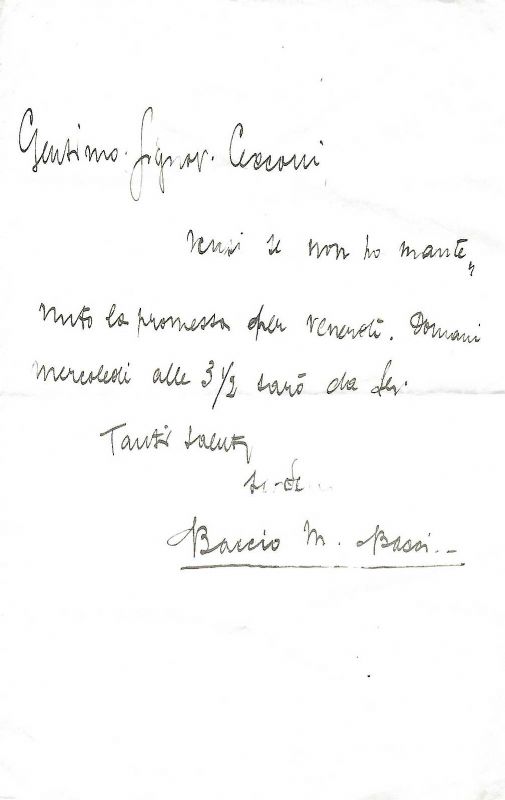 Gentimo. Signor. Cecconi
scusi se non ho mante„
nuto la promessa per venerdì. Domani
mercoledì alle 3 1/2 sarò da Lei.
Tanti saluti
Baccio M. Bacci.-